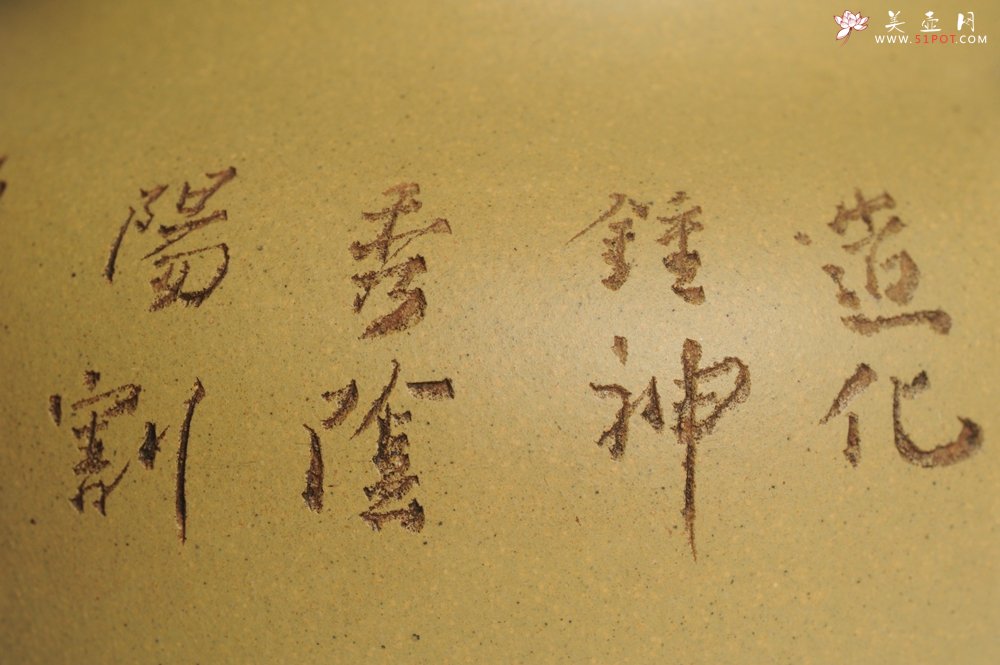 造化
鍾神
秀陰
陽割
美壶网
WWW.51POT.COM